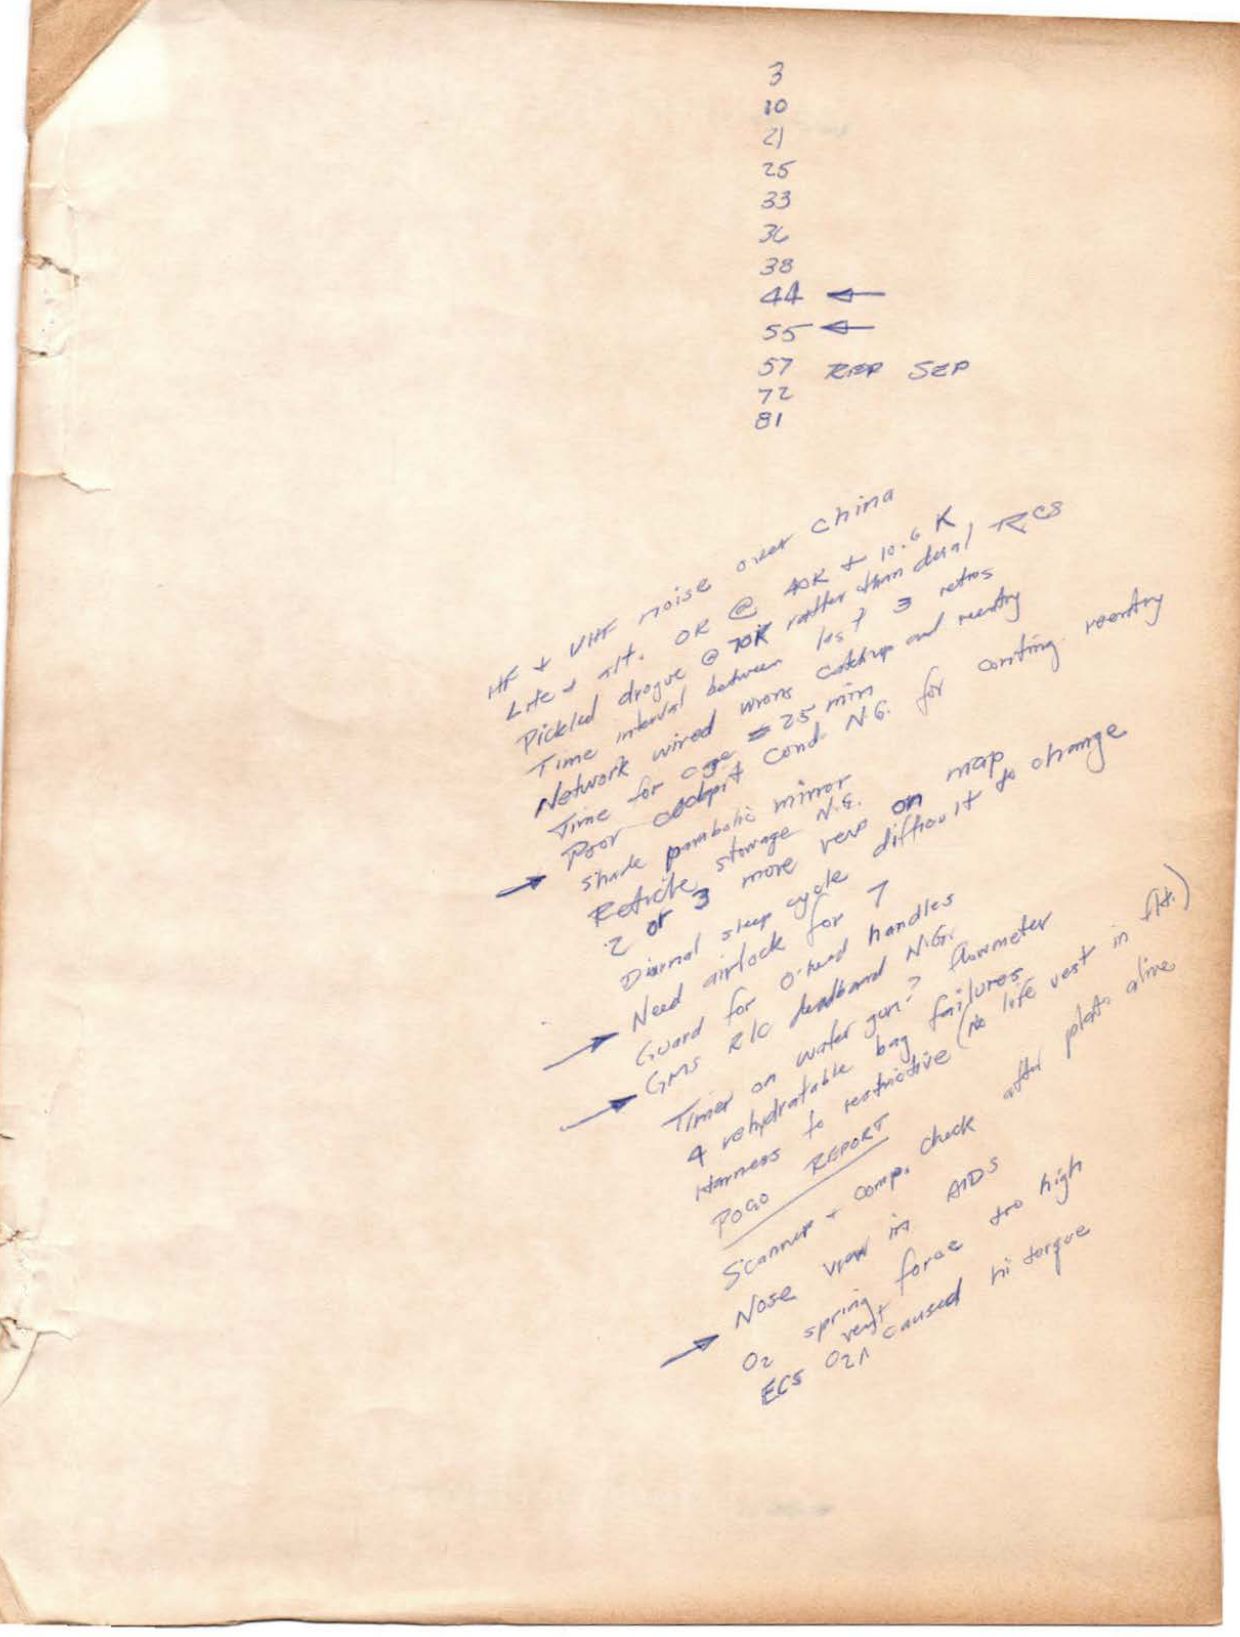 3
10
21
25
33
36
38
44 ←
55 ←
57 REP SEP
72
81
HF + VHF noise over China
Lite + alt. OK @ 40K + 10.6 K
Pickled drogue @ 70K rather than dual RCS
Time interval between last 3 retros
Network wired wrong catchup and reentry
Time for cge = 25 min
→ Poor cockpit cond. N.G. for conting. reentry
Shade parabolic mirror
Reticle stowage N.G.
2 or 3 more revs on map
Diurnal sleep cycle difficult to change
→ Need airlock for 7
Guard for o'head handles
→ GMS R/C deadband N.G.
Timer on water gun? flowmeter
4 rehydratable bag failures
Harness to restrictive (No life vest in flt.)
POGO REPORT
Scanner + comp. check after plats. aline
Nose view in AIDS
→ O2 spring force too high
ECS O2 vent caused hi torque